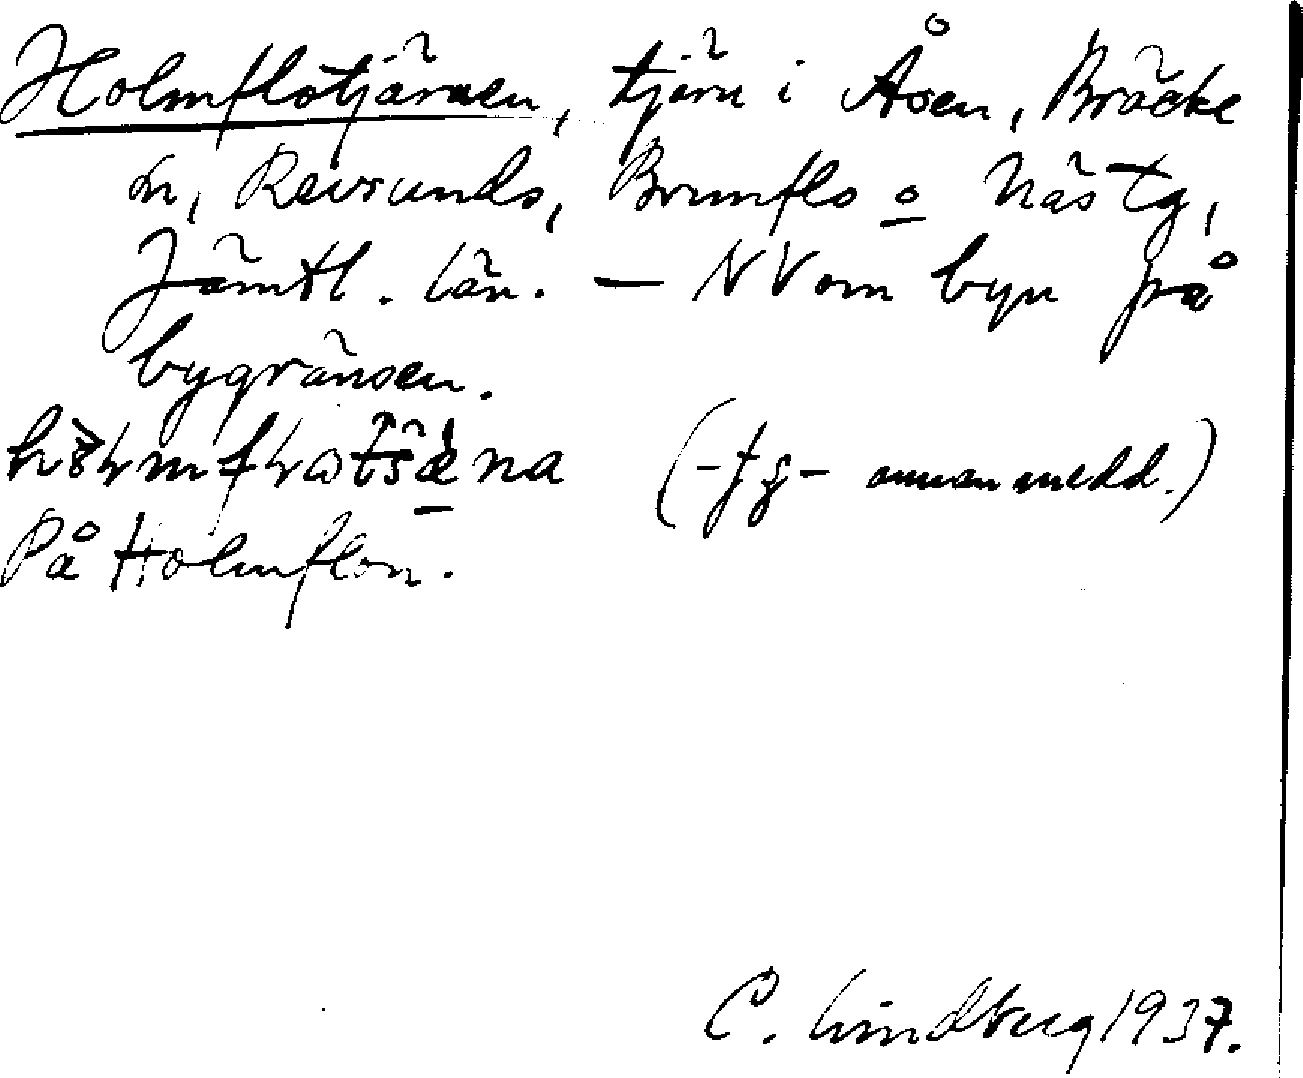 Holmflotjärnen, tjärn i Åsen, Bräcke
sn, Revsunds, Brunflo o Näs tg,
Jämtl. län. — NV om byn på
bygränsen.
(- annan medd.)
På Holmflon.
C. Lindberg 1937.